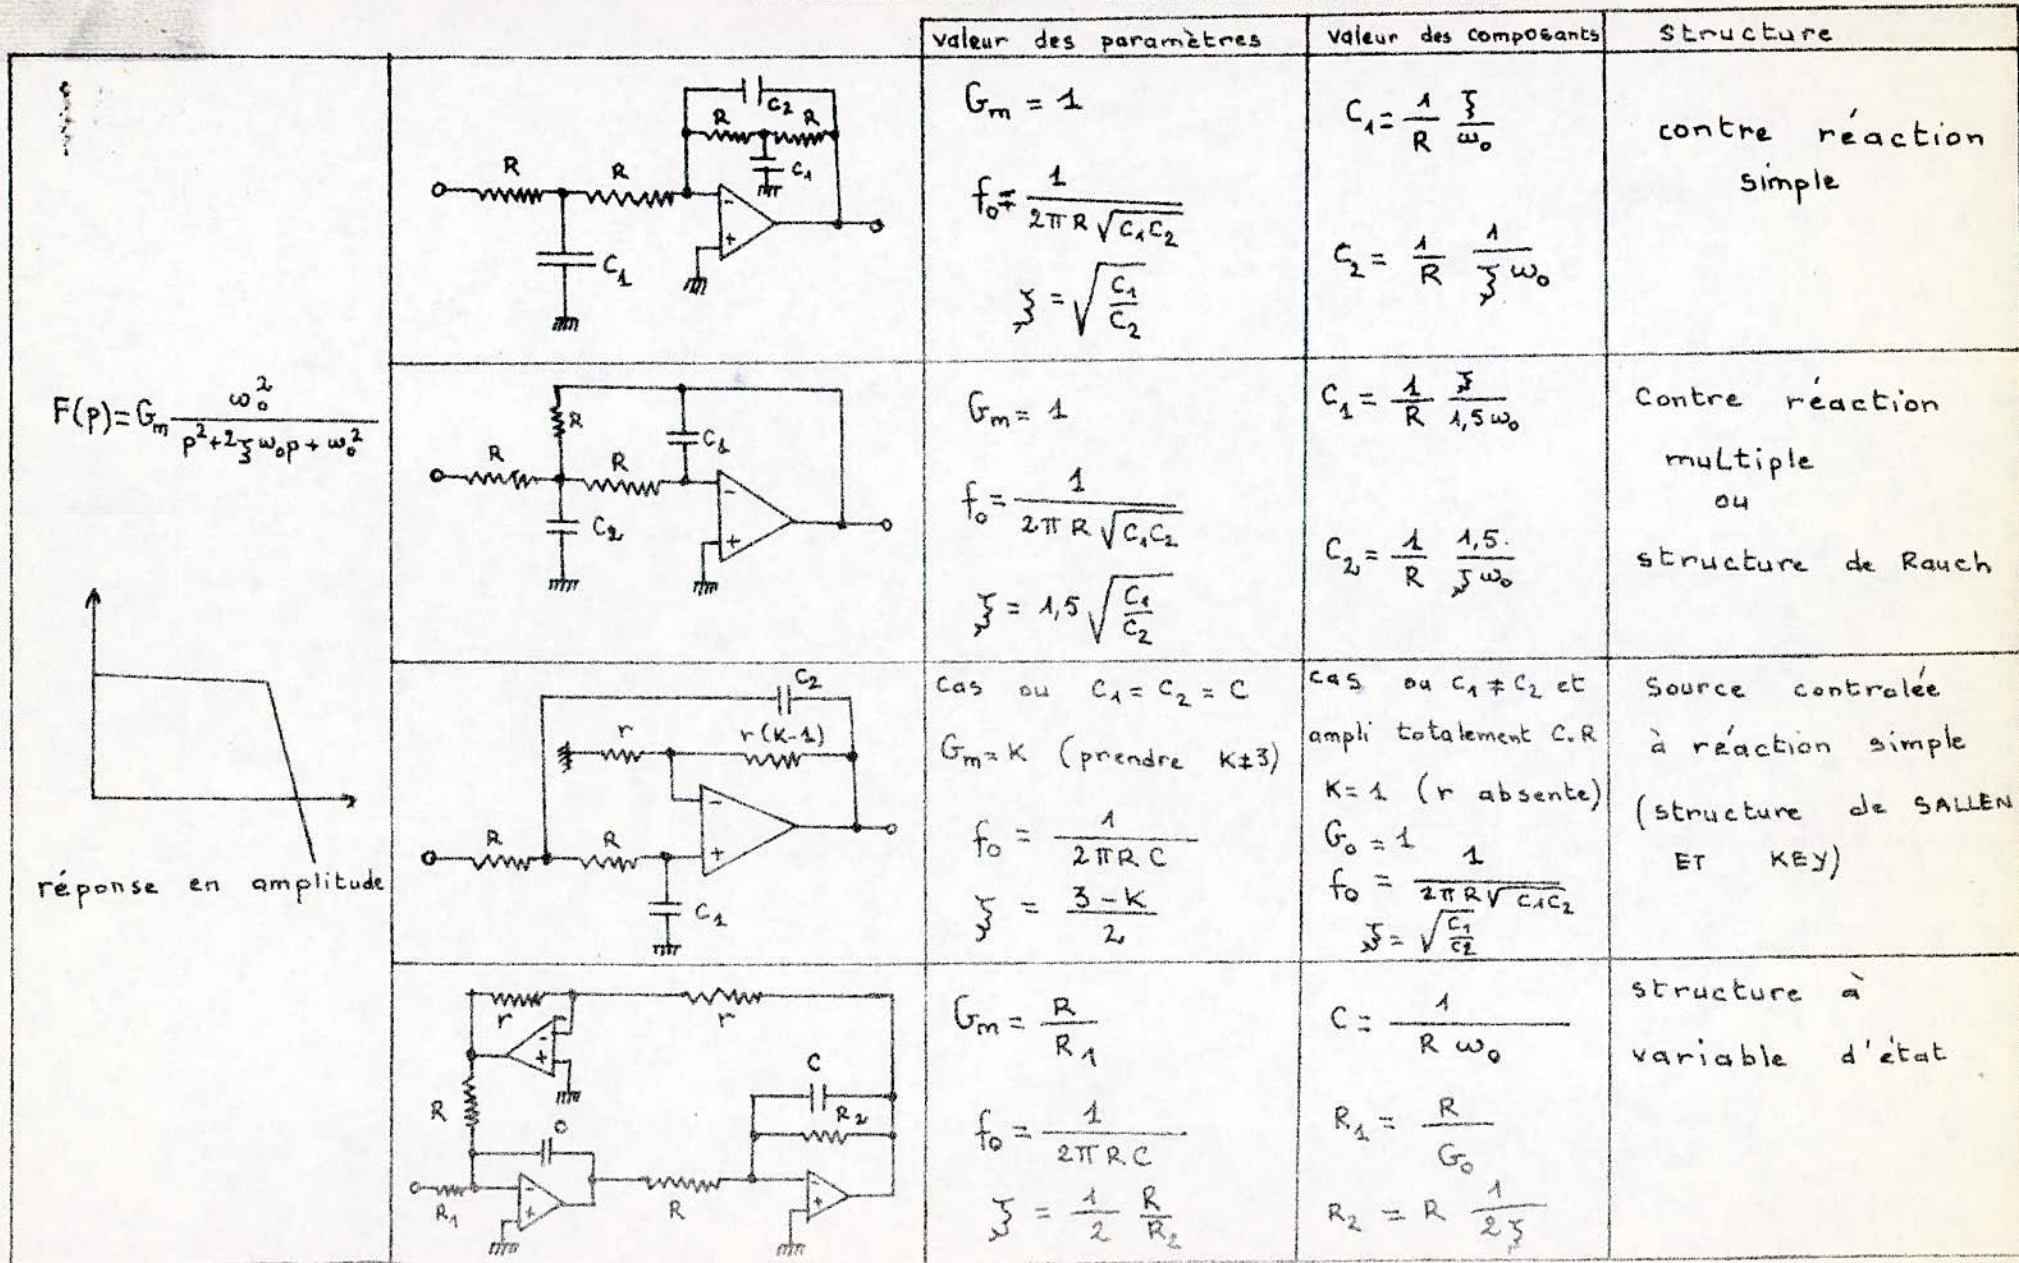 valeur des paramètres
valeur des composants
structure
F(p)=G_m ω_0^2 / (p^2+2ξω_0p+ω_0^2)
réponse en amplitude
C2
R R
C1
R R
- +
C1
G_m = 1
f_0 = 1 / (2πR√(C1C2))
ξ = √(C1/C2)
C1 = 1/R ξ/ω_0
C2 = 1/R 1/(ξω_0)
contre réaction
simple
R
C1
R R
- +
C2
G_m = 1
f_0 = 1 / (2πR√(C1C2))
ξ = 1,5 √(C1/C2)
C1 = 1/R ξ/(1,5ω_0)
C2 = 1/R 1,5/(ξω_0)
Contre réaction
multiple
ou
structure de Rauch
C2
r r(K-1)
- +
R R
C1
cas ou C1 = C2 = C
G_m = K (prendre K≠3)
f_0 = 1 / (2πRC)
ξ = (3-K)/2
cas ou C1 ≠ C2 et
ampli totalement C.R
K=1 (r absente)
G_0 = 1
f_0 = 1 / (2πR√(C1C2))
ξ = √(C1/C2)
Source contralée
à réaction simple
(structure de SALLEN
ET KEY)
r r
- +
R
C
C
R2
R1
- +
R
- +
G_m = R/R1
f_0 = 1 / (2πRC)
ξ = 1/2 R/R2
C = 1 / (Rω_0)
R1 = R/G_0
R2 = R 1/(2ξ)
structure à
variable d'état